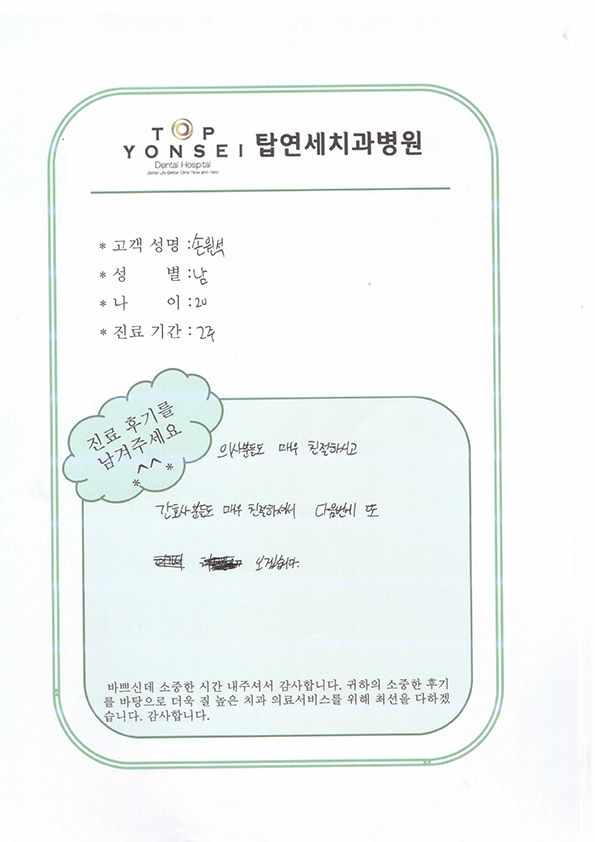 TOP
YONSEI 탑연세치과병원
Dental Hospital
Better Life Better Clinic Now and Here
* 고객 성명 : 손원석
* 성 별 : 남
* 나 이 : 20
* 진료 기간 : 2주
진료 후기를
남겨주세요
* ^^ *
의사분들도 매우 친절하시고
간호사분들도 매우 친절하셔서 다음번에 또
오겠습니다.
바쁘신데 소중한 시간 내주셔서 감사합니다. 귀하의 소중한 후기
를 바탕으로 더욱 질 높은 치과 의료서비스를 위해 최선을 다하겠
습니다. 감사합니다.